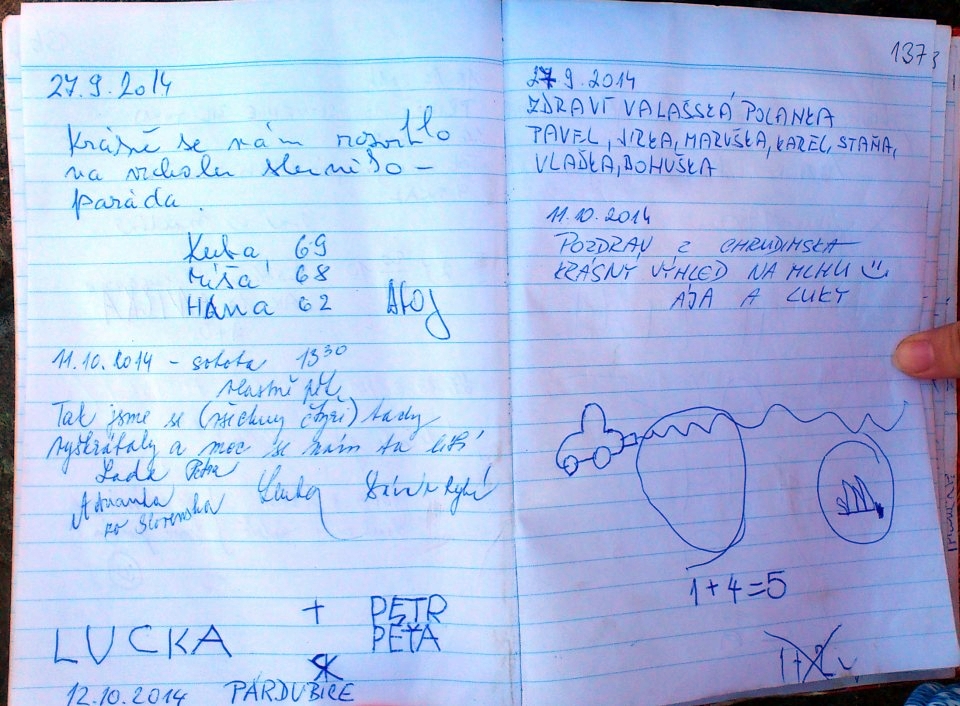 27.9.2014
Krásně se nám rozvrhlo
na vrcholu
paráda.
Kuba 69
Míša 68
Hana 62 Ahoj
11.10.2014 - sobota 13³⁰
vlastně pěk.
Tak jsme se (všechny čtyři) tady
vyškrábaly a moc se nám tu líbí
Lada Petra
Adriana Lenka
ze Slovenska
LUCKA + PETR
PEŤA
12.10.2014 PARDUBICE
1373
27 9.2014
ZDRAVÍ VALAŠSKÁ POLANKA
PAVEL, JIRKA, MARUŠKA, KAREL, STAŇA,
VLAĎKA, BOHUŠKA
11.10.2014
POZDRAV Z CHRUDIMSKA
KRÁSNÝ VÝHLED NA MLHU
AJA A LUKY
1+4=5
1+2